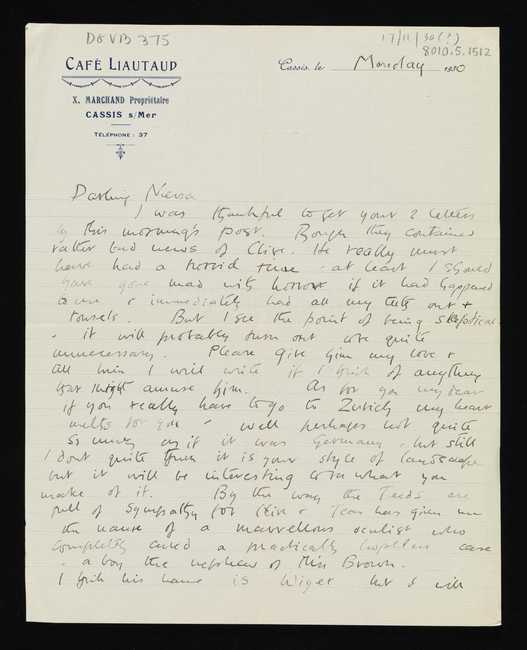 DGVB 375
17/11/30(?)
8010.5.1512
CAFÉ LIAUTAUD
X. MARCHAND Propriétaire
CASSIS s/Mer
TÉLÉPHONE : 37
Cassis, le Monday 1930
Darling Nessa
I was thankful to get your 2 letters
by this morning's post. Though they contained
rather bad news of Clive. He really must
have had a horrid time - at least I should
have gone mad with horror if it had happened
to me & immediately had all my teeth out +
tonsils. But I see the point of being skeptical
- it will probably turn out to be quite
unnecessary. Please give him my love &
tell him I will write if I think of anything
that might amuse him. As for you my dear
if you really have to go to Zurich my heart
melts for you - well perhaps not quite
so much as if it was Germany - but still
I dont quite think it is your style of landscape
but it will be interesting to see what you
make of it. By the way the Teeds are
full of sympathy for Clive & Jean has given me
the name of a marvellous oculist who
completely cured a practically hopeless case
- a boy the nephew of Miss Brown.
I think his name is Wiger but I will